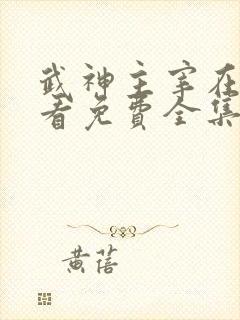 武神主宰在
看免費全集
黄蓓